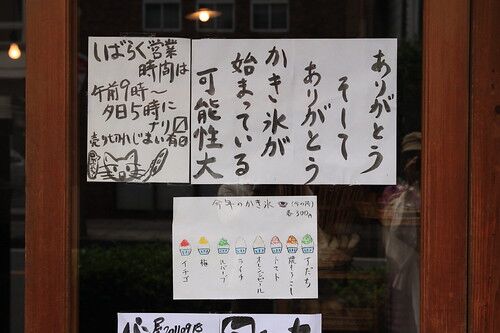 しばらく営業
時間は
午前9時〜
夕日5時に
ナリ〼
売り切れじまい有〼
ありがとう
そして
ありがとう
かき氷が
始まっている
可能性大
今年のかき氷
各300円
イチゴ
梅
ライチ
トマト
焼きもろこし
すだち